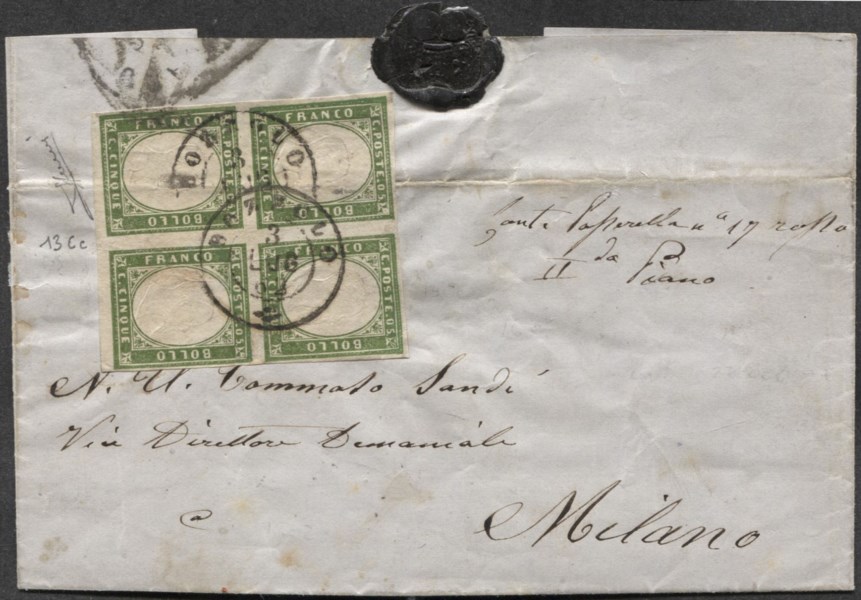 FRANCO
C. CINQUE
C. POSTE. 05
BOLLO
FRANCO
C. CINQUE
C. POSTE. 05
BOLLO
FRANCO
C. CINQUE
C. POSTE. 05
BOLLO
FRANCO
C. CINQUE
C. POSTE. 05
BOLLO
13Cc
17 rosso
da
II Piano
N. U. Tommaso Sandi
Direttore Demaniale
Milano